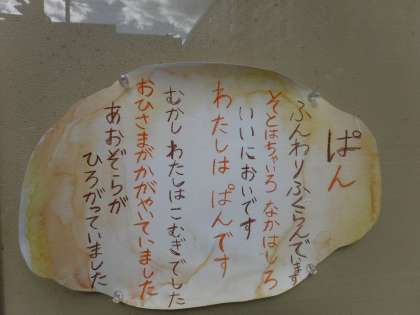 ぱん
ふんわりふくらんでいます
そとはちゃいろ なかはしろ
いいにおいです
わたしは ぱんです
むかし わたしはこむぎでした
おひさまがかがやいていました
あおぞらが
ひろがっていました